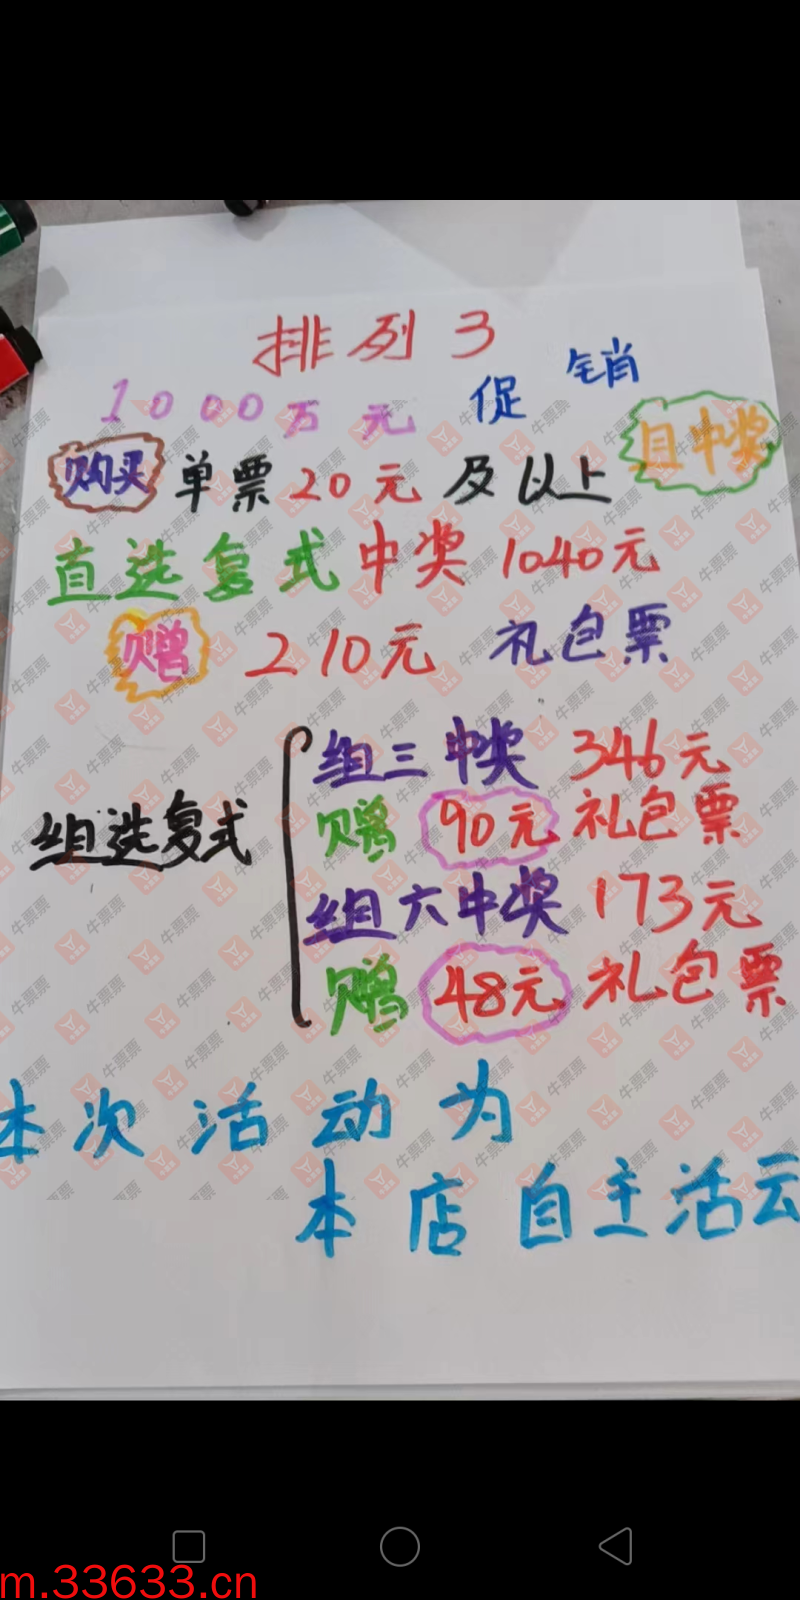 排列3
1000万元 促销
购买 单票20元及以上 且中奖
直选复式中奖1040元
赠 210元 礼包票
组选复式
组三中奖 346元
赠 90元 礼包票
组六中奖 173元
赠 48元 礼包票
本次活动为
本店自主活动
牛票票
m.33633.cn